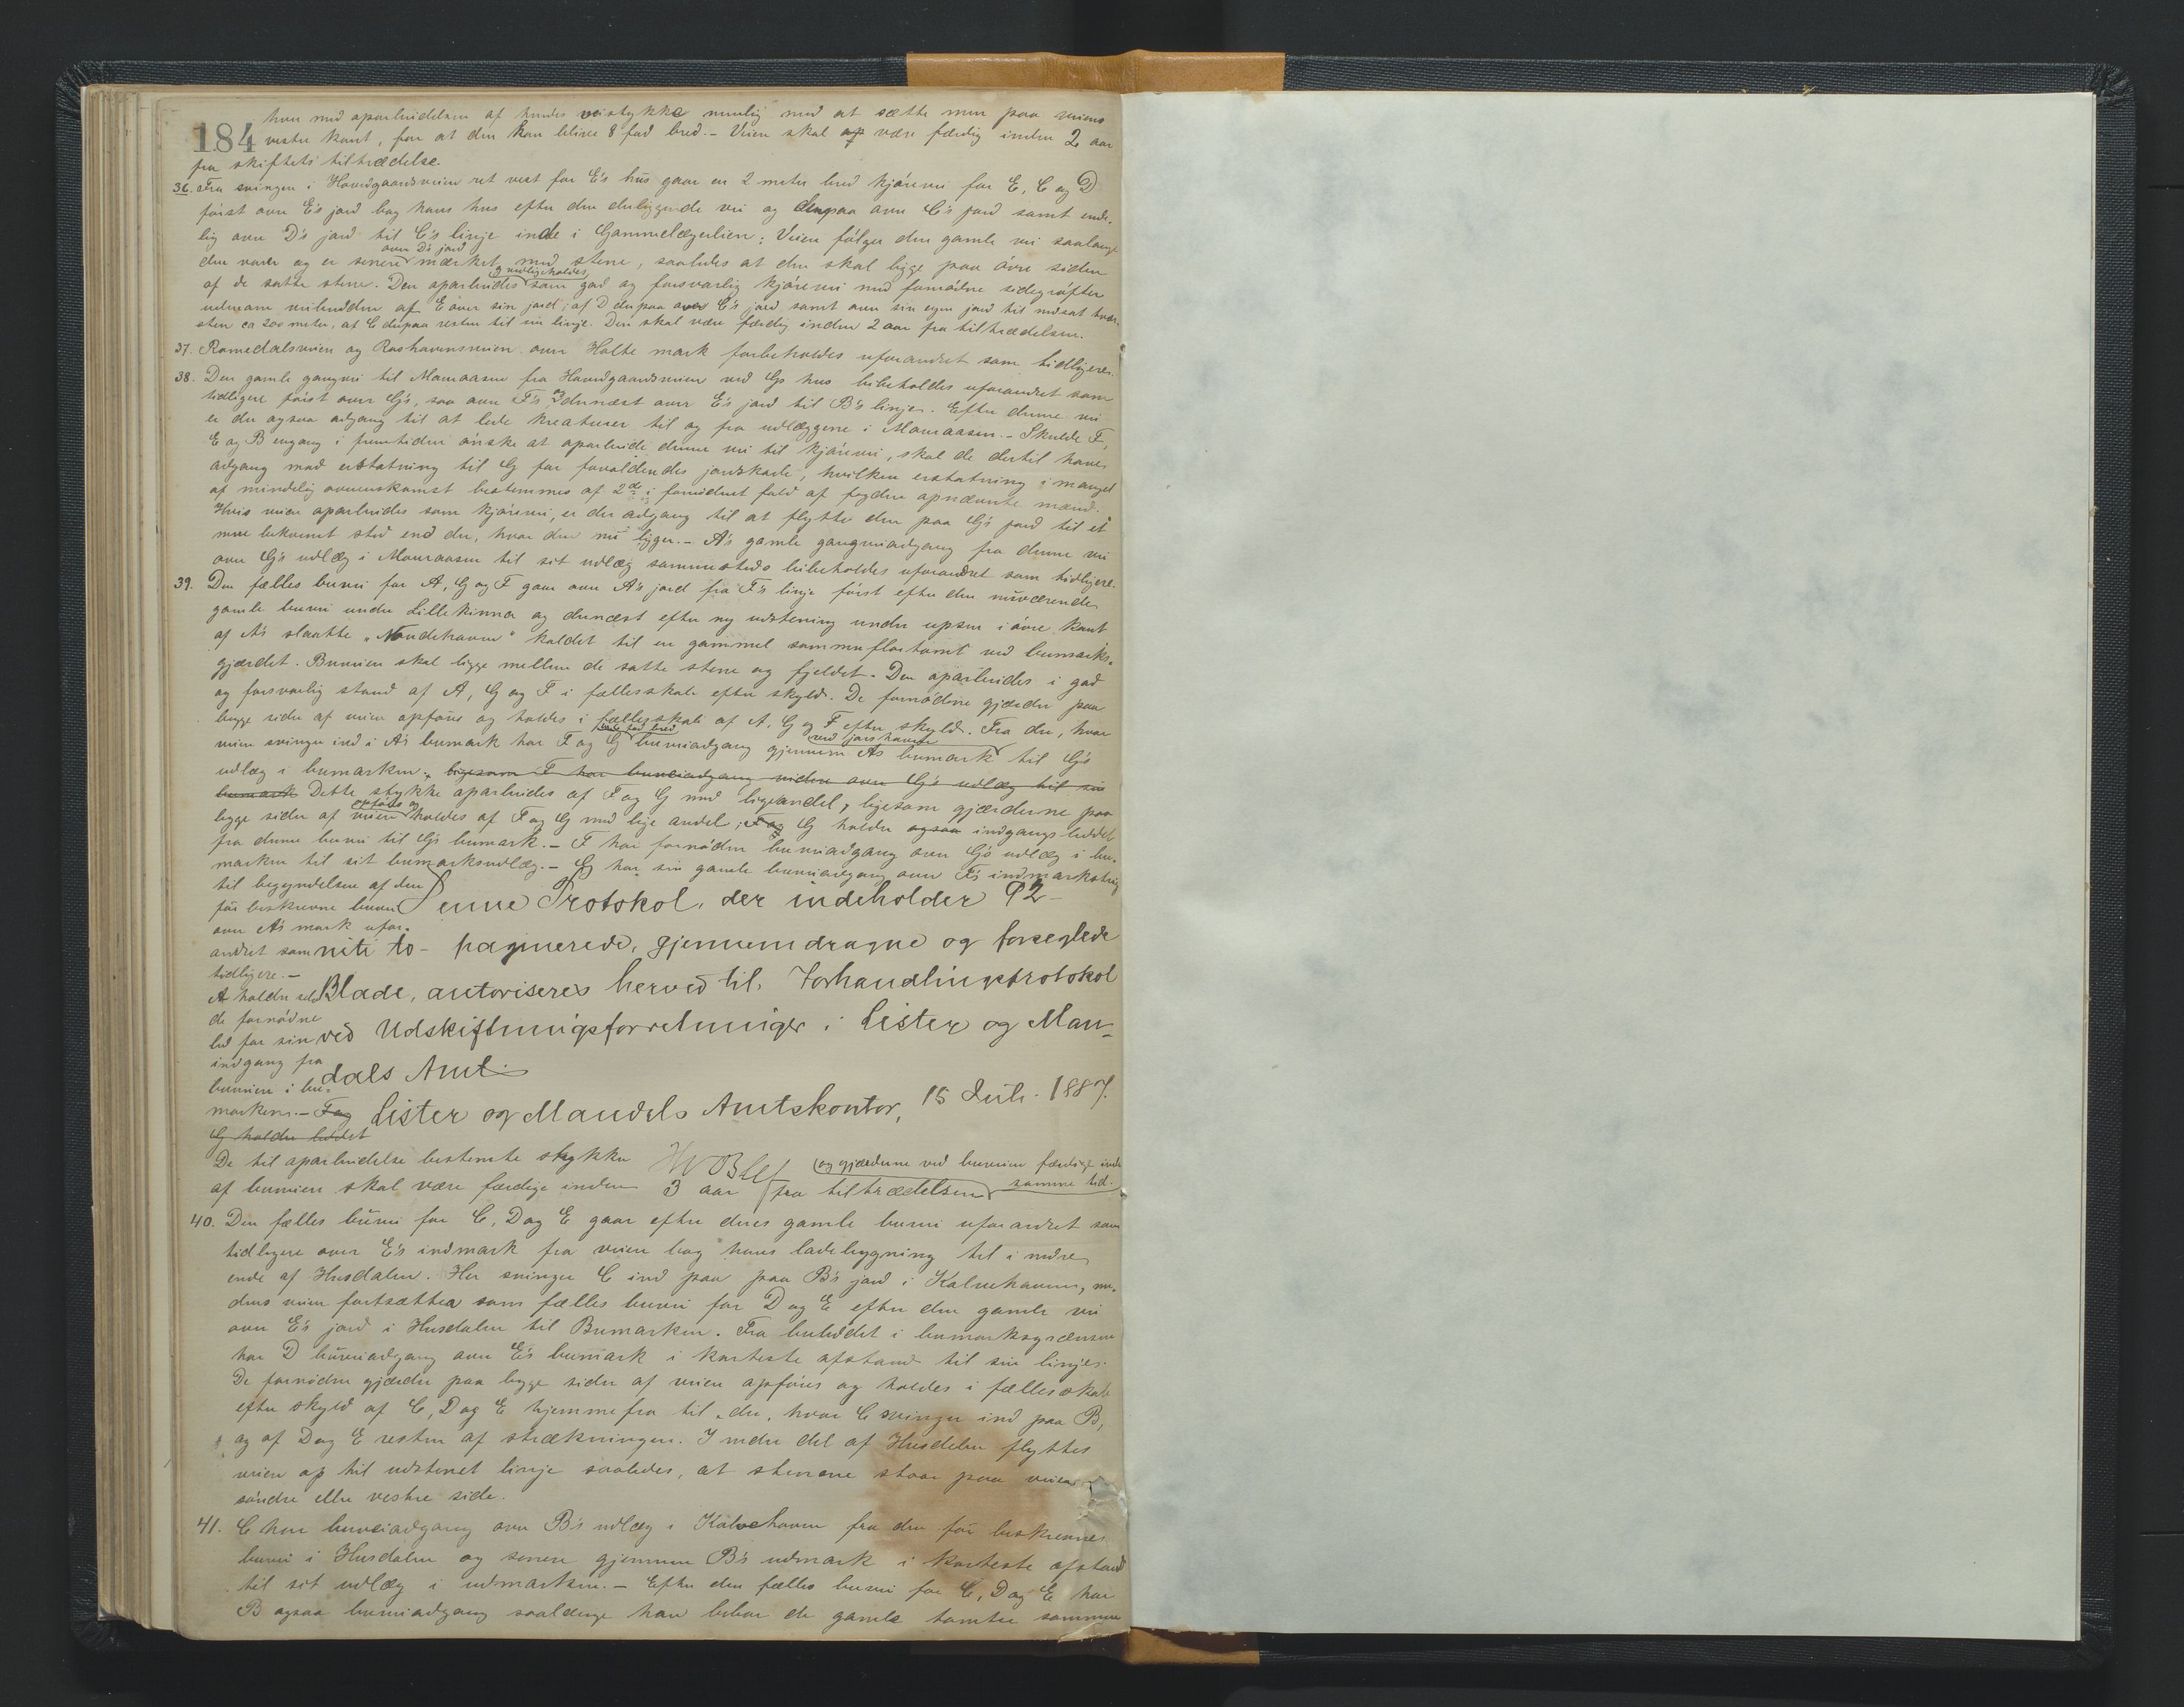 184
hver med oparbeidelsen af hendes veistykke nemlig med at sætte mur paa veiens
vestre kant, for at den kan blive 8 fod bred. - Veien skal op være færdig inden 2 aar
fra skiftets tiltrædelse.
36. Fra svingen i Hovedgaardsveien ret vest for E's hus gaar en 2 meter bred kjørevei for E, C og D
først over E's jord bag hans hus efter den derliggende vei og derpaa over C's jord samt ende-
lig over D's jord til C's linje inde i Gammelægerlien; Veien følger den gamle vei saalangt
over D's jord
den varer og er senere mærket med stene, saaledes at den skal ligge paa øvre siden
og vedligeholdes
af de satte stene. Den oparbeides som god og forsvarlig kjørevei med fornødne sidegrøfter
udenom veibredden af E over sin jord; af D derpaa over C's jord samt over sin egen jord til nedsat tvær-
sten ca 200 meter, af C derpaa resten til sin linje. Den skal være færdig inden 2 aar fra tiltrædelsen.
37. Romedalsveien og Roshavensveien over Holte mark forbeholdes uforandret som tidligere.
38. Den gamle gangvei til Mouraasen fra Hovedgaardsveien ved Gs hus bibeholdes uforandret som
tidligere først over G's, saa over F's og dernæst over E's jord til B's linje. Efter denne vei
er der ogsaa adgang til at lede kreaturer til og fra udlæggene i Mouraasen. - Skulde F,
E og B engang i fremtiden ønske at oparbeide denne vei til kjørevei, skal de dertil have
adgang mod erstatning til G for forvoldendes jordskade, hvilken erstatning i mangel
af mindelig overenskomst bestemmes af 2de i fornødent fald af fogden opnævnte mænd.
Hvis veien oparbeides som kjørevei, er der adgang til at flytte den paa G's jord til et
mere bekvemt sted end der, hvor den nu ligger. - A's gamle gangveiadgang fra denne vei
over G's udlæg i Mouraasen til sit udlæg sammesteds bibeholdes uforandret som tidligere.
39. Den fælles buvei for A, G og F gaar over A's jord fra F's linje først efter den nuværende
gamle buvei under Lillekinna og dernæst efter ny udstening under upsen i øvre kant
af A's slaatte "Nondehaven" kaldet til en gammel sommerflortomt ved bumarks-
gjærdet. Buveien skal ligge mellem de satte stene og fjeldet. Den oparbeides i god
og forsvarlig stand af A, G og F i fællesskab efter skyld. De fornødne gjærder paa
begge sider af veien opføres og holdes i fællesskab af A, G og F efter skyld. Fra der, hvor
ved jorshaven
veien svinger ind i A's bumark har F og G buveiadgang gjennem As bumark til G's
udlæg i bumarken, ligesom F har buveiadgang videre over G's udlæg til sin
bumark Dette stykke oparbeides af F og G med ligeandel, ligesom gjærderne paa
opføres og
begge sider af veien holdes af F og G med lige andel; F og G holder ogsaa indgangsleddet
fra denne buvei til G's bumark. - F har fornøden buveiadgang over G's udlæg i bu-
marken til sit bumarksudlæg. - G har sin gamle buveiadgang over F's indmarksteig
til begyndelsen af den
før beskrevne buvei
over A's mark ufor-
andret som
tidligere. -
A holder selv
de fornødne
led for sin
indgang fra
buveien i bu-
marken. - F og
G holder leddet
Denne Protokol, der indeholder 92-
niti to- paginerede, gjennemdragne og forseglede
Blade, autoriseres herved til Forhandlingsprotokol
ved Udskiftningsforretninger i Lister og Man-
dals Amt.
Lister og Mandals Amtskontor, 15 Juli 1887.
De til oparbeidelse bestemte stykker (og gjærderne ved buveien færdige inden
af buveien skal være færdige inden 3 aar fra tiltrædelsen samme tid.
40. Den fælles buvei for C, D og E gaar efter deres gamle buvei uforandret som
tidligere over E's indmark fra veien bag hans ladebygning til i nedre
ende af Husdalen. Her svinger C ind paa paa B's jord i Kalvehaven, me-
dens veien fortsætter som fælles buvei for D og E efter den gamle vei
over E's jord i Husdalen til Bumarken. Fra buleddet i bumarksgrænsen
har D buveiadgang over E's bumark i korteste afstand til sin linje.
De fornødne gjærder paa begge sider af veien opføres og holdes i fællesskab
efter skyld af C, D og E hjemmefra til der, hvor C svinger ind paa B,
og af D og E resten af strækningen. I nedre del af Husdalen flyttes
veien op til udstenet linje saaledes, at stenene staar paa veiens
søndre eller vestre side.
41. C har buveiadgang over B's udlæg i Kalvehaven fra den før beskrevne
buvei i Husdalen og senere gjennem B's udmark i korteste afstand
til sit udlæg i udmarken. - Efter den fælles buvei for C, D og E har
B ogsaa buveiadgang saalænge han bebor de gamle tomter sammen